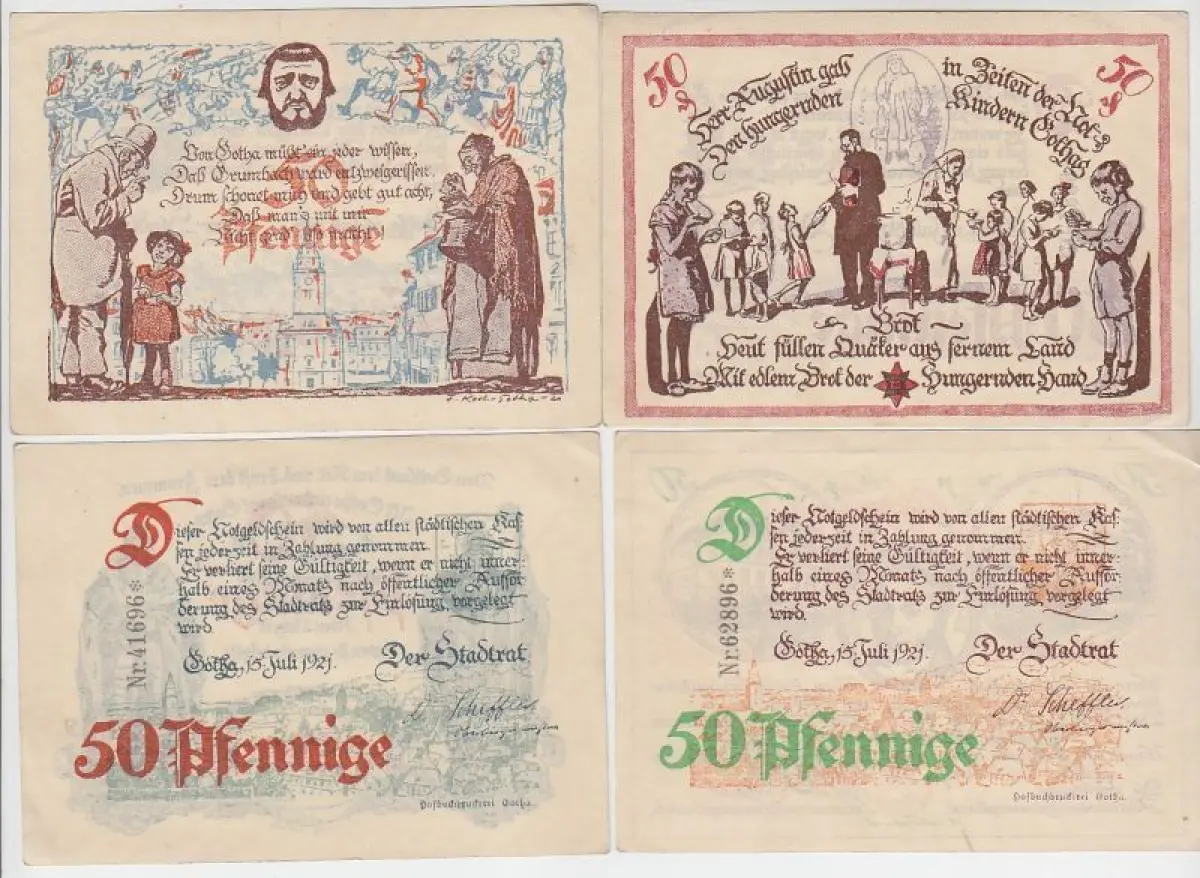 Von Gotha müßt' ein jeder wissen,
Daß Grumbach ward entzweigerissen.
Drum schonet mich und gebt gut acht,
Daß man's mit mir
Nicht grad' so macht!
50
Pfennige
50
50
Herr Augustin gab in Zeiten der Not
Den hungernden Kindern Gothas
Brot
Heut füllen Quäker aus fernem Land
Mit edlem Brot der Hungernden Hand
Dieser Notgeldschein wird von allen städtischen Kas-
sen jederzeit in Zahlung genommen.
Er verliert seine Gültigkeit, wenn er nicht inner-
halb eines Monats nach öffentlicher Auffor-
derung des Stadtrats zur Einlösung vorgelegt
wird.
Nr. 41696*
Gotha, 15 Juli 1921. Der Stadtrat
Scheffler
Oberbürgermeister
50 Pfennige
Hofbuchdruckerei Gotha.
Dieser Notgeldschein wird von allen städtischen Kas-
sen jederzeit in Zahlung genommen.
Er verliert seine Gültigkeit, wenn er nicht inner-
halb eines Monats nach öffentlicher Auffor-
derung des Stadtrats zur Einlösung vorgelegt
wird.
Nr. 62896*
Gotha, 15 Juli 1921. Der Stadtrat
Dr. Scheffler
Oberbürgermeister
50 Pfennige
Hofbuchdruckerei Gotha.